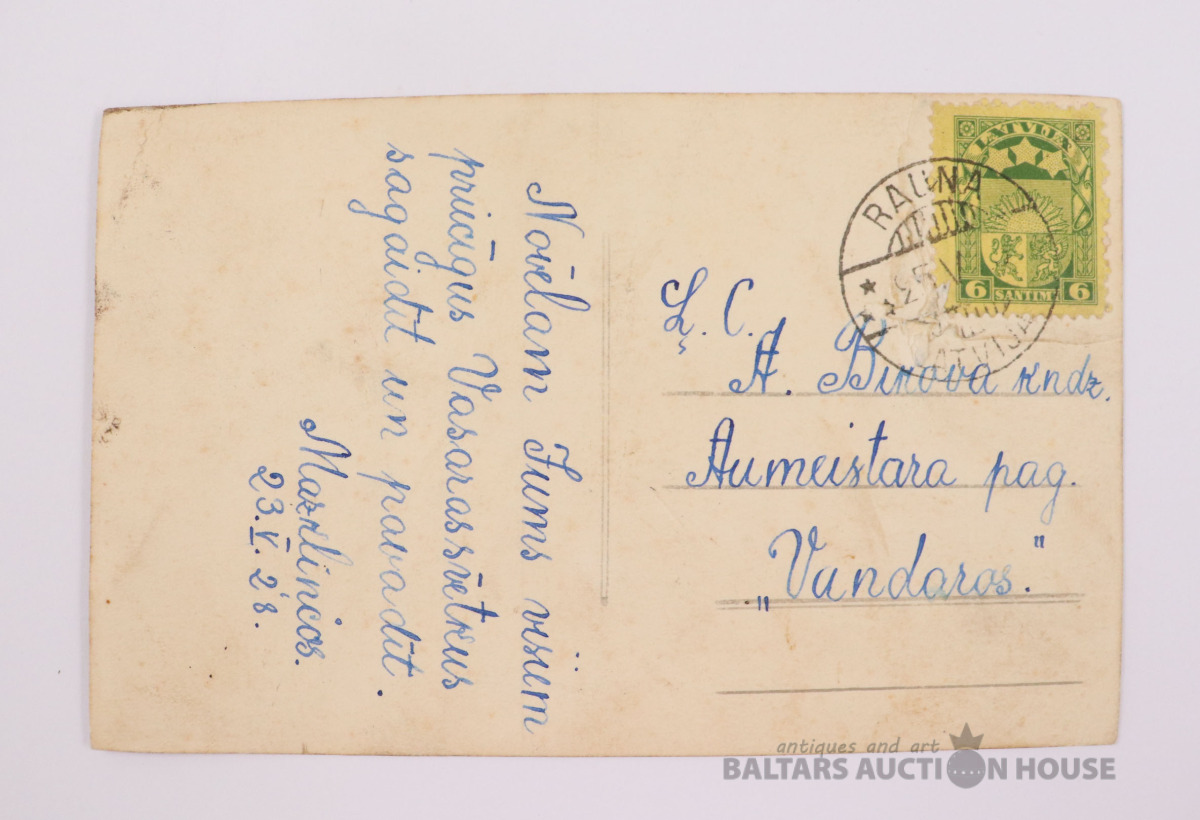 Novēlam Jums visiem
priecīgus Vasarassvētkus
sagaidīt un pavadīt.
23.V.28.
LATVIJA
6 SANTIMI 6
RAUNA
LATVIJA
L. C.
A. Birova kndz.
Aumeistara pag.
„Vandaros."
antiques and art
BALTARS AUCTION HOUSE